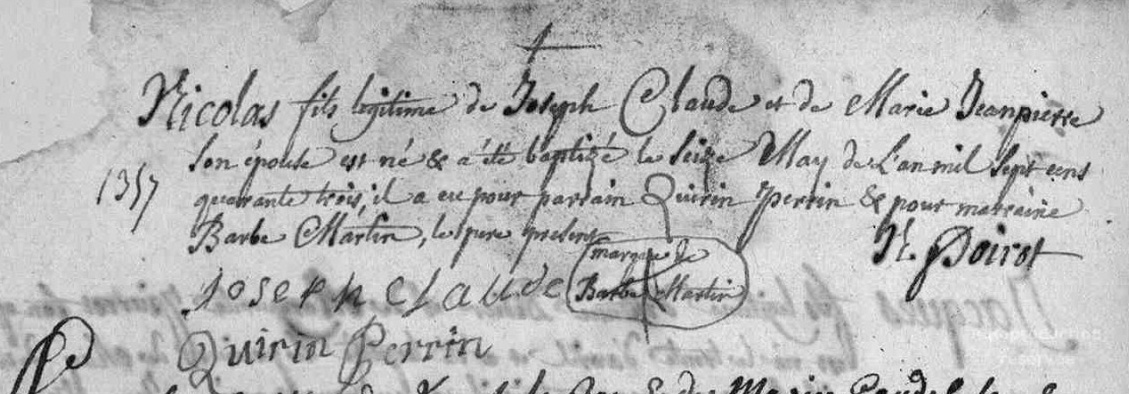 Nicolas fils legitime de Joseph Claude et de Marie Jeanpierre
son épouse est né & a été baptizé le seize May de L'an mil sept cens
1357
quarante trois, il a eu pour parrain Quirin Perrin & pour marraine
Barbe Martin, le pere present
N. Poirot
marque de
Barbe Martin
Joseph Claude
Quirin Perrin